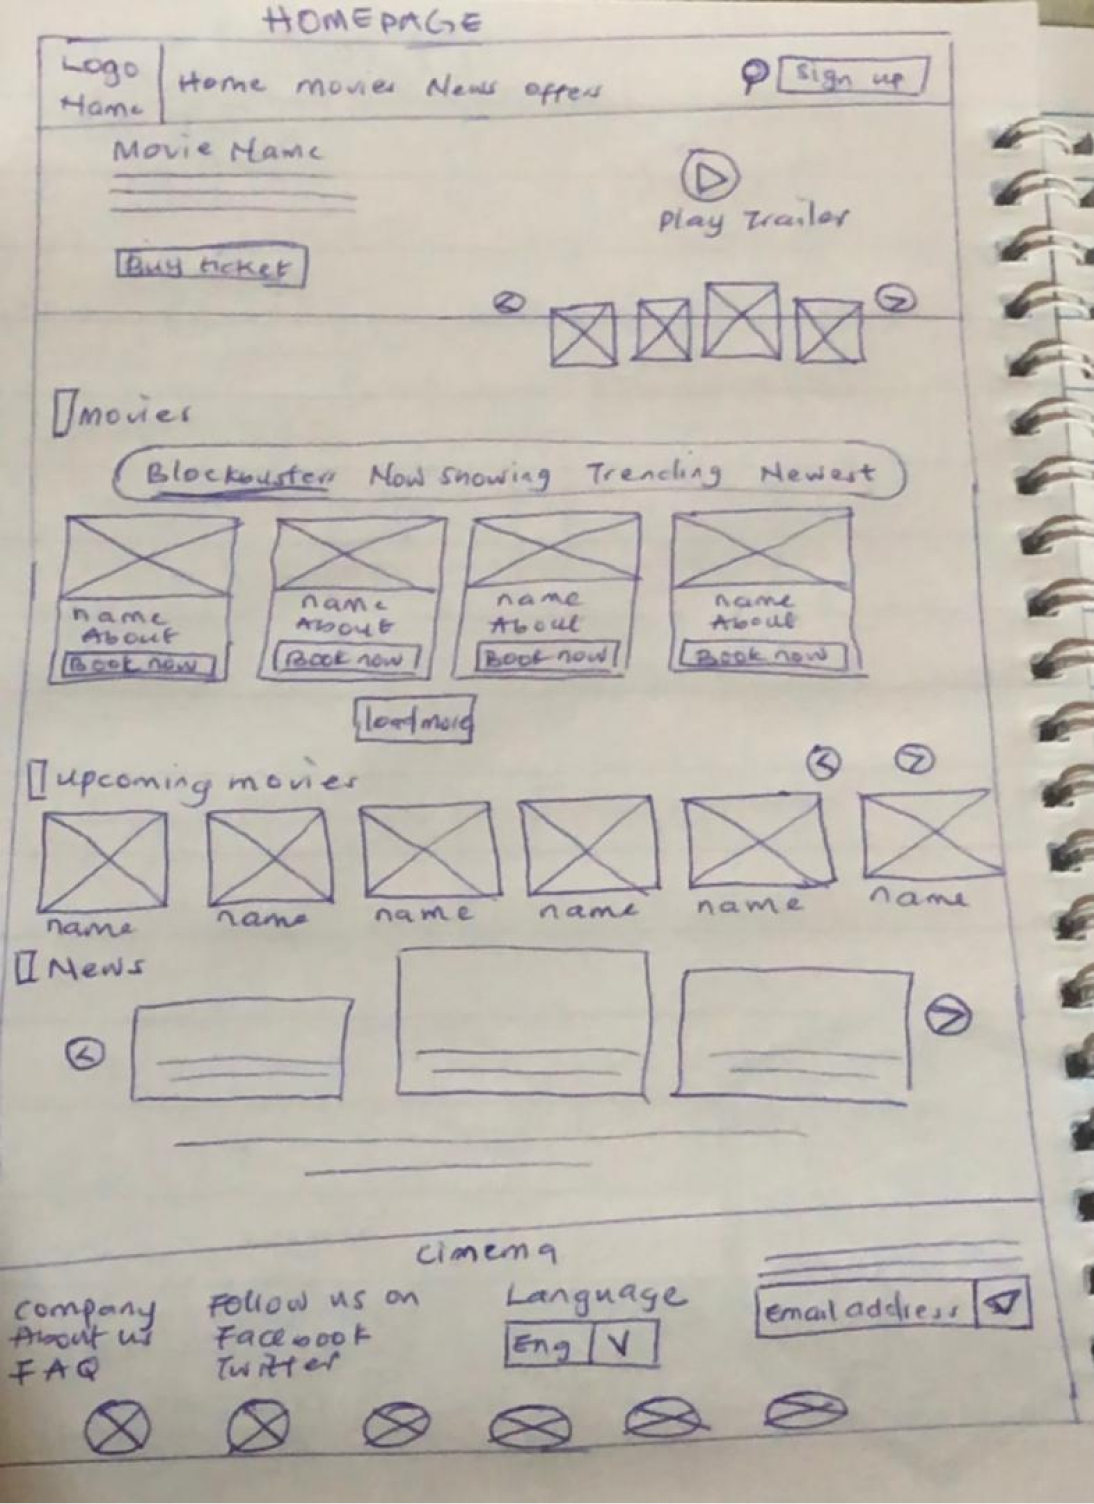 HOMEPAGE
Logo
Name
Home movies News offers
Sign up
Movie Name
Play Trailer
Buy ticket
movies
Blockbusters Now Showing Trending Newest
name
About
Book now
name
About
Book now
name
About
Book now
name
About
Book now
load more
upcoming movies
name
name
name
name
name
name
News
cimema
company
About us
FAQ
Follow us on
Facebook
Twitter
Language
Eng
Email address